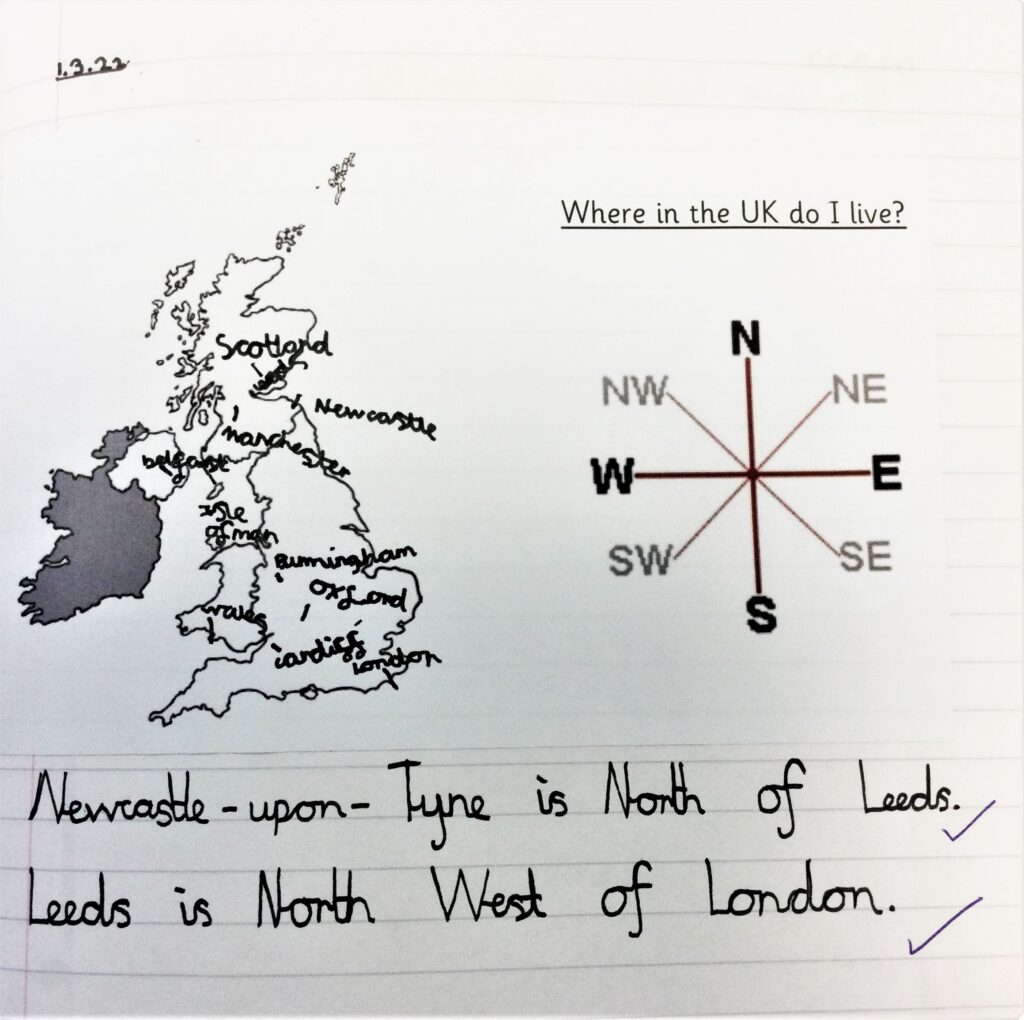 1.3.22
Where in the UK do I live?
N
NW NE
W E
SW SE
S
Scotland
Leeds
Newcastle
Manchester
belfast
isle
of man
Burmingham
Oxford
wales
cardiff
London
Newcastle-upon-Tyne is North of Leeds.
Leeds is North West of London.